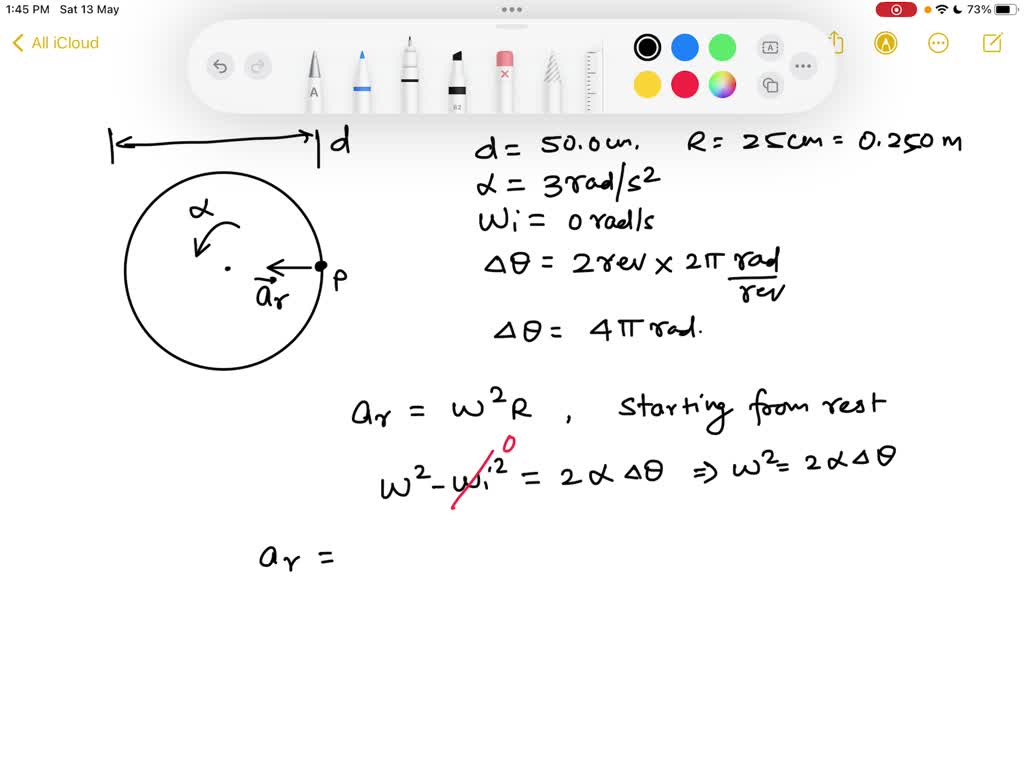 1:45 PM Sat 13 May
73%
All iCloud
A
82
A
A
d
d = 50.0cm. R = 25cm = 0.250 m
α = 3 rad/s²
α
ωi = 0 rad/s
Δθ = 2 rev × 2π rad/rev
P
ar
Δθ = 4π rad.
ar = ω²R , starting from rest
0
ω² - ωi² = 2αΔθ ⇒ ω² = 2αΔθ
ar =